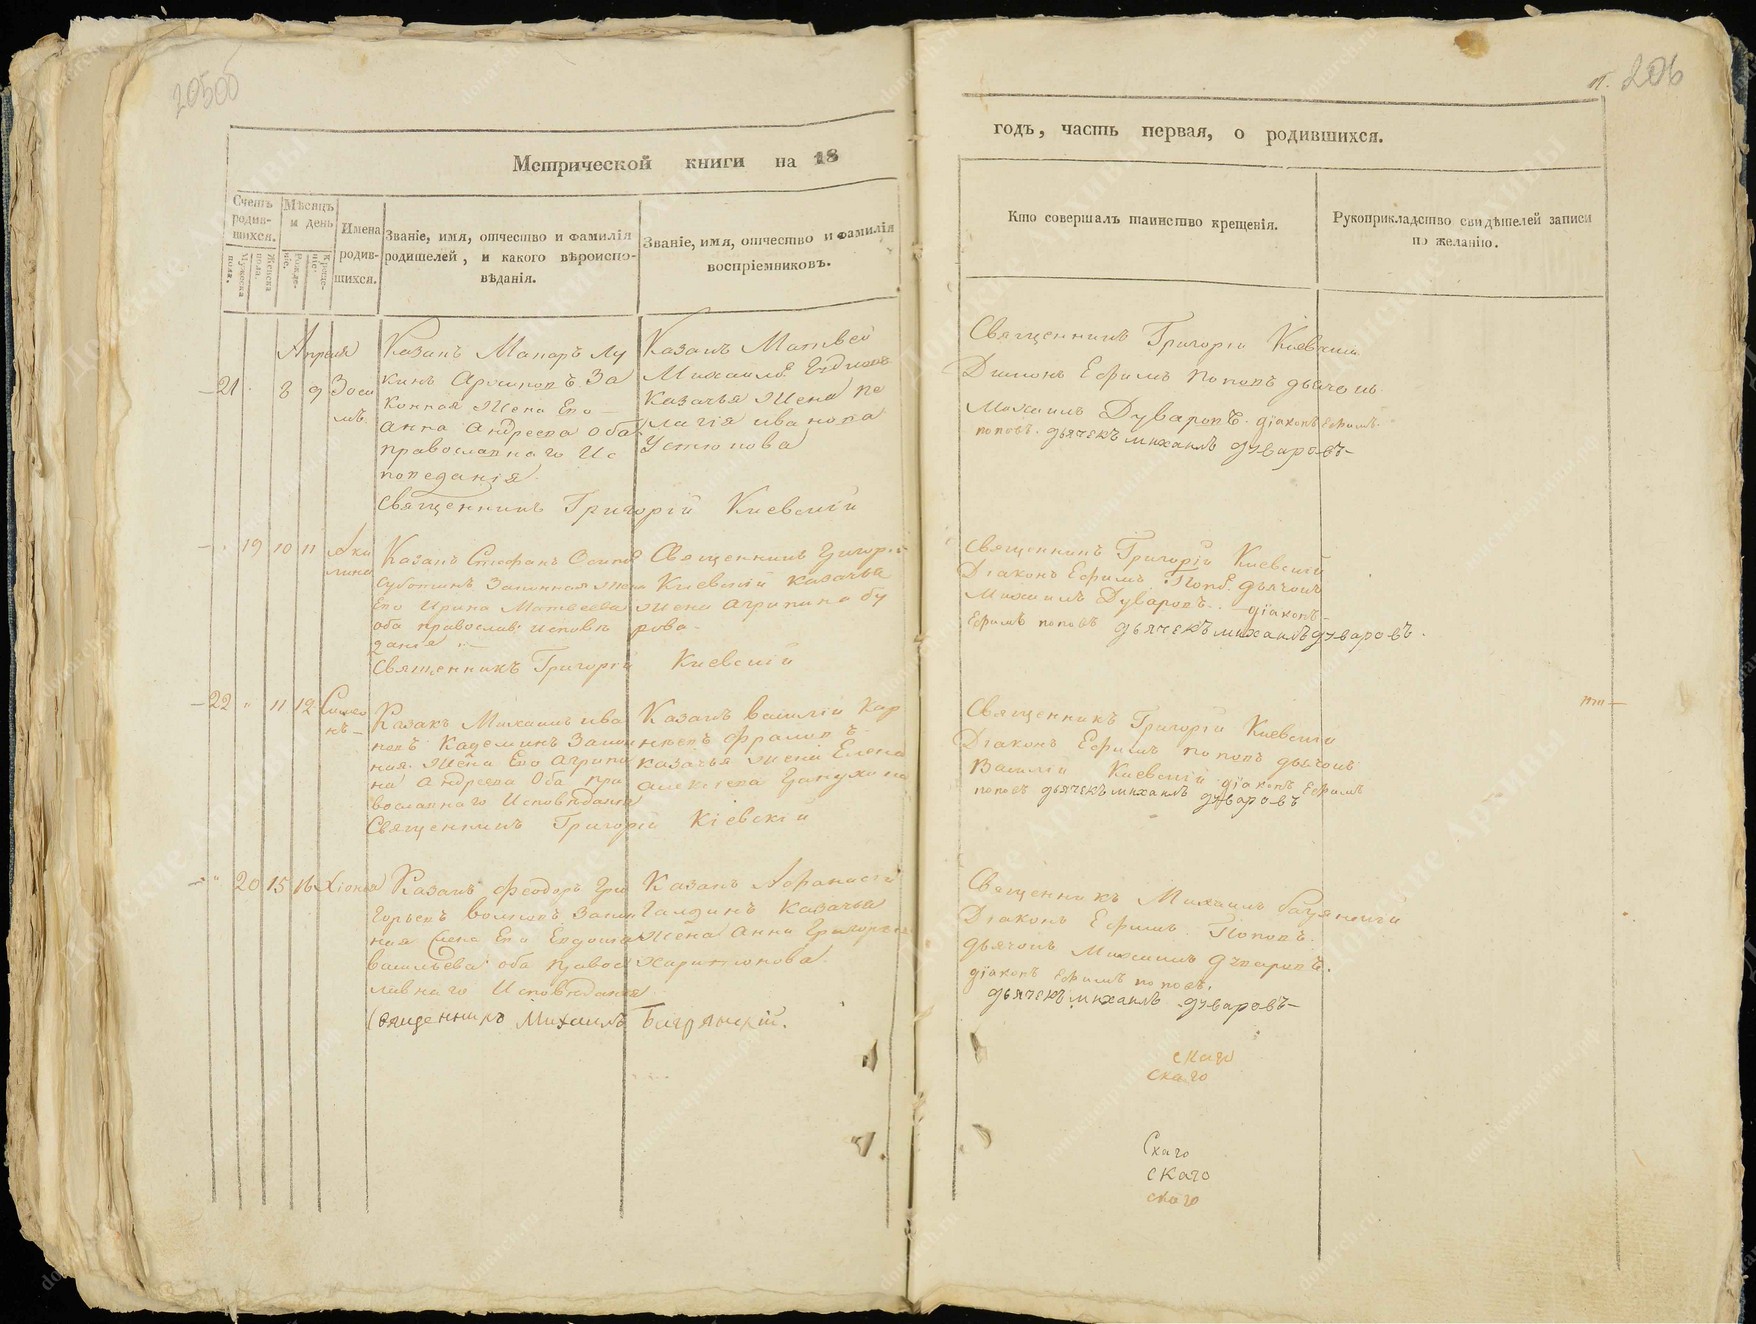 20500
л. 206
Метрической книги на 18
годъ, часть первая, о родившихся.
Счетъ родив-
шихся.
Мужеска пола.
Женска пола.
Мѣсяцъ и день
Рожде-
ніе.
Креще-
ніе.
Имена
родив-
шихся.
Званіе, имя, отчество и фамилія
родителей, и какого вѣроиспо-
вѣданія.
Званіе, имя, отчество и фамилія
воспріемниковъ.
Кто совершалъ таинство крещенія.
Рукоприкладство свидѣтелей записи
по желанію.
Апреля
21 8 9 Зоси
мъ.
Казакъ Макаръ Лу
кинъ Архиповъ За
конная Жена Его
анна Андреева оба
православнаго Ис
поведанія.
Казакъ Матвей
Михайлов
казачья Жена Пе
лагія иванова
Устюнова
Священникъ Григорій Киевскій
Священникъ Григорій Киевскій
Диаконъ Ефимъ Поповъ дьячокъ
Михаилъ Дуваровъ. діаконъ Ефимъ
поповъ. дьячекъ михаилъ дуваровъ
19 10 11 Аки
лина
Казакъ Стефанъ Осипов
Суботинъ Законная жена
Его Ирина Матвеева
оба православ: исповѣ
данія
Священникъ Григорій
Киевскій казачья
жена агрипина бу
рова.
Священникъ Григорій Киевскій
Священникъ Григорій Киевскій
Діаконъ Ефимъ Попов дьячокъ
Михаилъ Дуваровъ. діаконъ
Ефимъ поповъ дьячекъ михаилъ дуваровъ.
22 11 12 Симео
нъ
Казакъ Михаилъ ива
новъ Каделинъ Закон
ная Жена Его Агрипи
на Андреева Оба пра
вославнаго Исповѣданія
Казакъ василій Кар
нѣевъ Фроловъ
казачья жена Елена
алексѣева
Священникъ Григорій Кіевскій
Священникъ Григорій Киевскій
Діаконъ Ефимъ поповъ дьячокъ
Василій Киевскій діаконъ Ефимъ
поповъ дьячекъ михаилъ дуваровъ
20 15 16 Хіонія
Казакъ Феодоръ Гри
горьевъ Волковъ Закон
ная Жена Его Евдокія
васильева оба правос
лавнаго Исповѣданія
Казакъ Афанасій
Галдинъ казачья
Жена Анна Григорьева
Харитонова.
Священникъ Михаилъ Багрянскій.
Священникъ Михаилъ Багрянскій
Діаконъ Ефимъ Поповъ.
дьячокъ Михаилъ Дуваровъ.
діаконъ Ефимъ поповъ,
дьячекъ михаилъ дуваровъ
скаго
скаго
Скаго
скаго
скаго